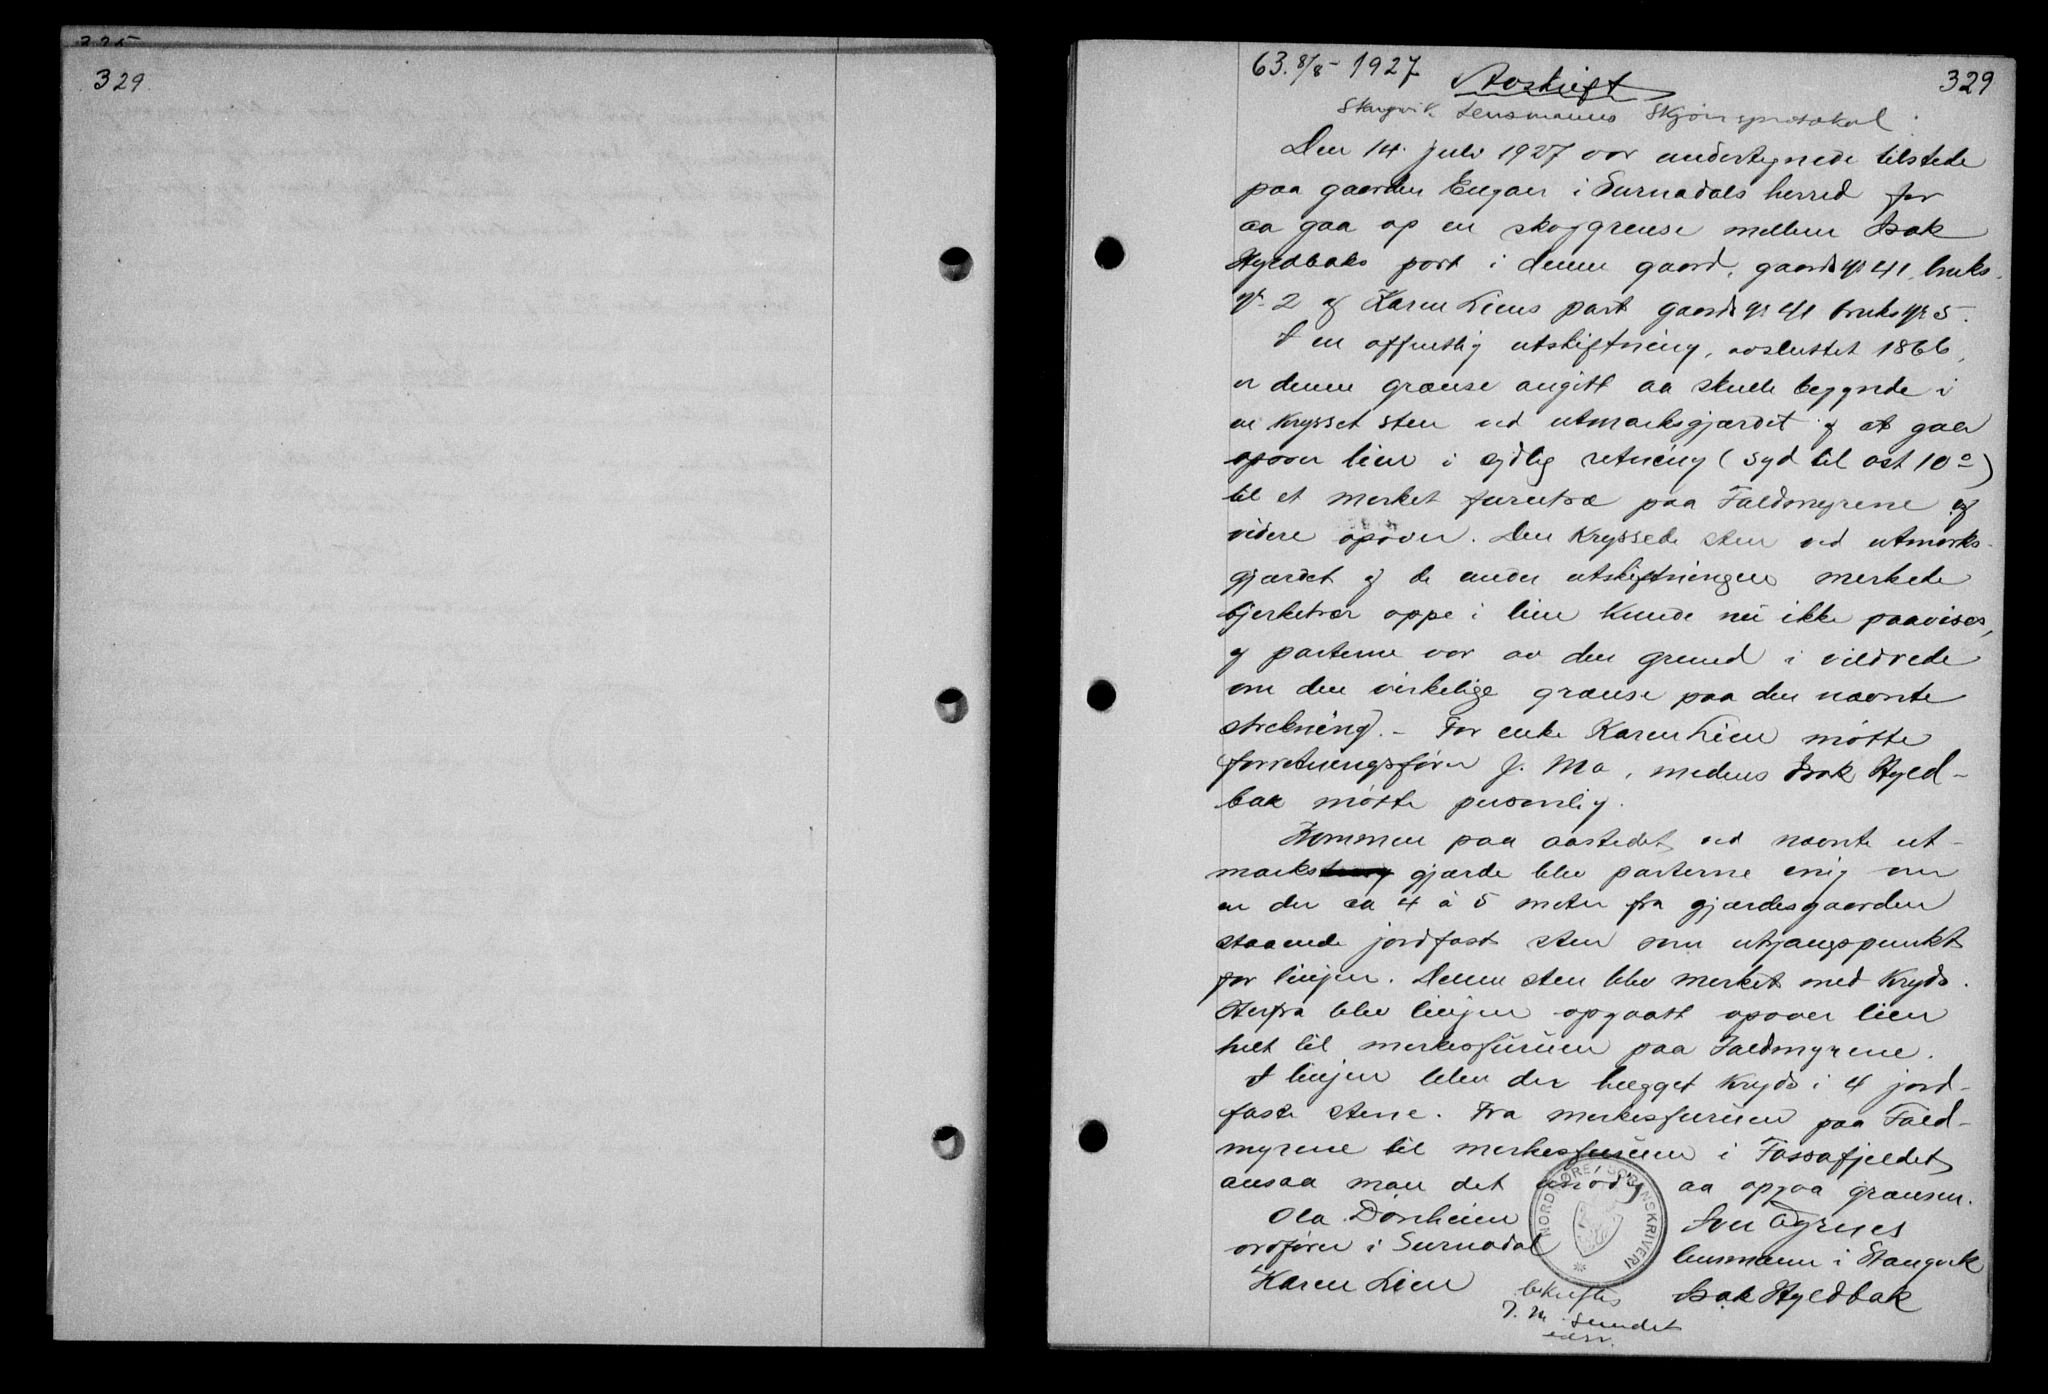 329
63. 8/8 - 1927
329
Avskrift
Stangvik lensmanns skjønsprotokol
Den 14. juli 1927 var undertegnede tilstede
paa gaarden Engan i Surnadals herred for
aa gaa op en skoggrense mellem Isak
Hyldbaks part i denne gaard, gaards № 41, bruks
№ 2 og Karen Liens part gaards № 41 bruks № 5.
I en offentlig utskiftning, avsluttet 1866,
er denne grænse angitt aa skulle begynde i
en krysset sten ved utmarksgjærdet og at gaa
opover lien i sydlig retning (syd til ost 10°)
til et merket furutræ paa Faldmyrene og
videre opover. Den kryssede sten ved utmarks-
gjærdet og de under utskiftningen merkede
bjerketrær oppe i lien kunde nu ikke paavises,
og parterne var av den grund i vildrede
om den virkelige grænse paa den nævnte
strekning. - For enke Karen Lien møtte
forretningsfører J. Mo, medens Isak Hyld-
bak møtte personlig.
Kommen paa aastedet ved nævnte ut-
marks gjærde blev parterne enig om
en der ca 4 à 5 meter fra gjærdesgaarden
staaende jordfast sten som utgangspunkt
for linjen. Denne sten blev merket med kryds.
Herfra blev linjen opgaatt opover lien
helt til merkesfuruen paa Faldmyrene.
I linjen blev der hugget kryds i 4 jord-
faste stene. Fra merkesfuruen paa Fald-
myrene til merkesfuruen i Fossafjeldet
ansaa man det unødig aa opgaa grænsen.
Ola Dønheim
ordfører i Surnadal
Karen Lien
NORDMØRE SORENSKRIVERI
lensmann i Stangvik
Isak Hyldbak
bekreftes
J. M. Sundet